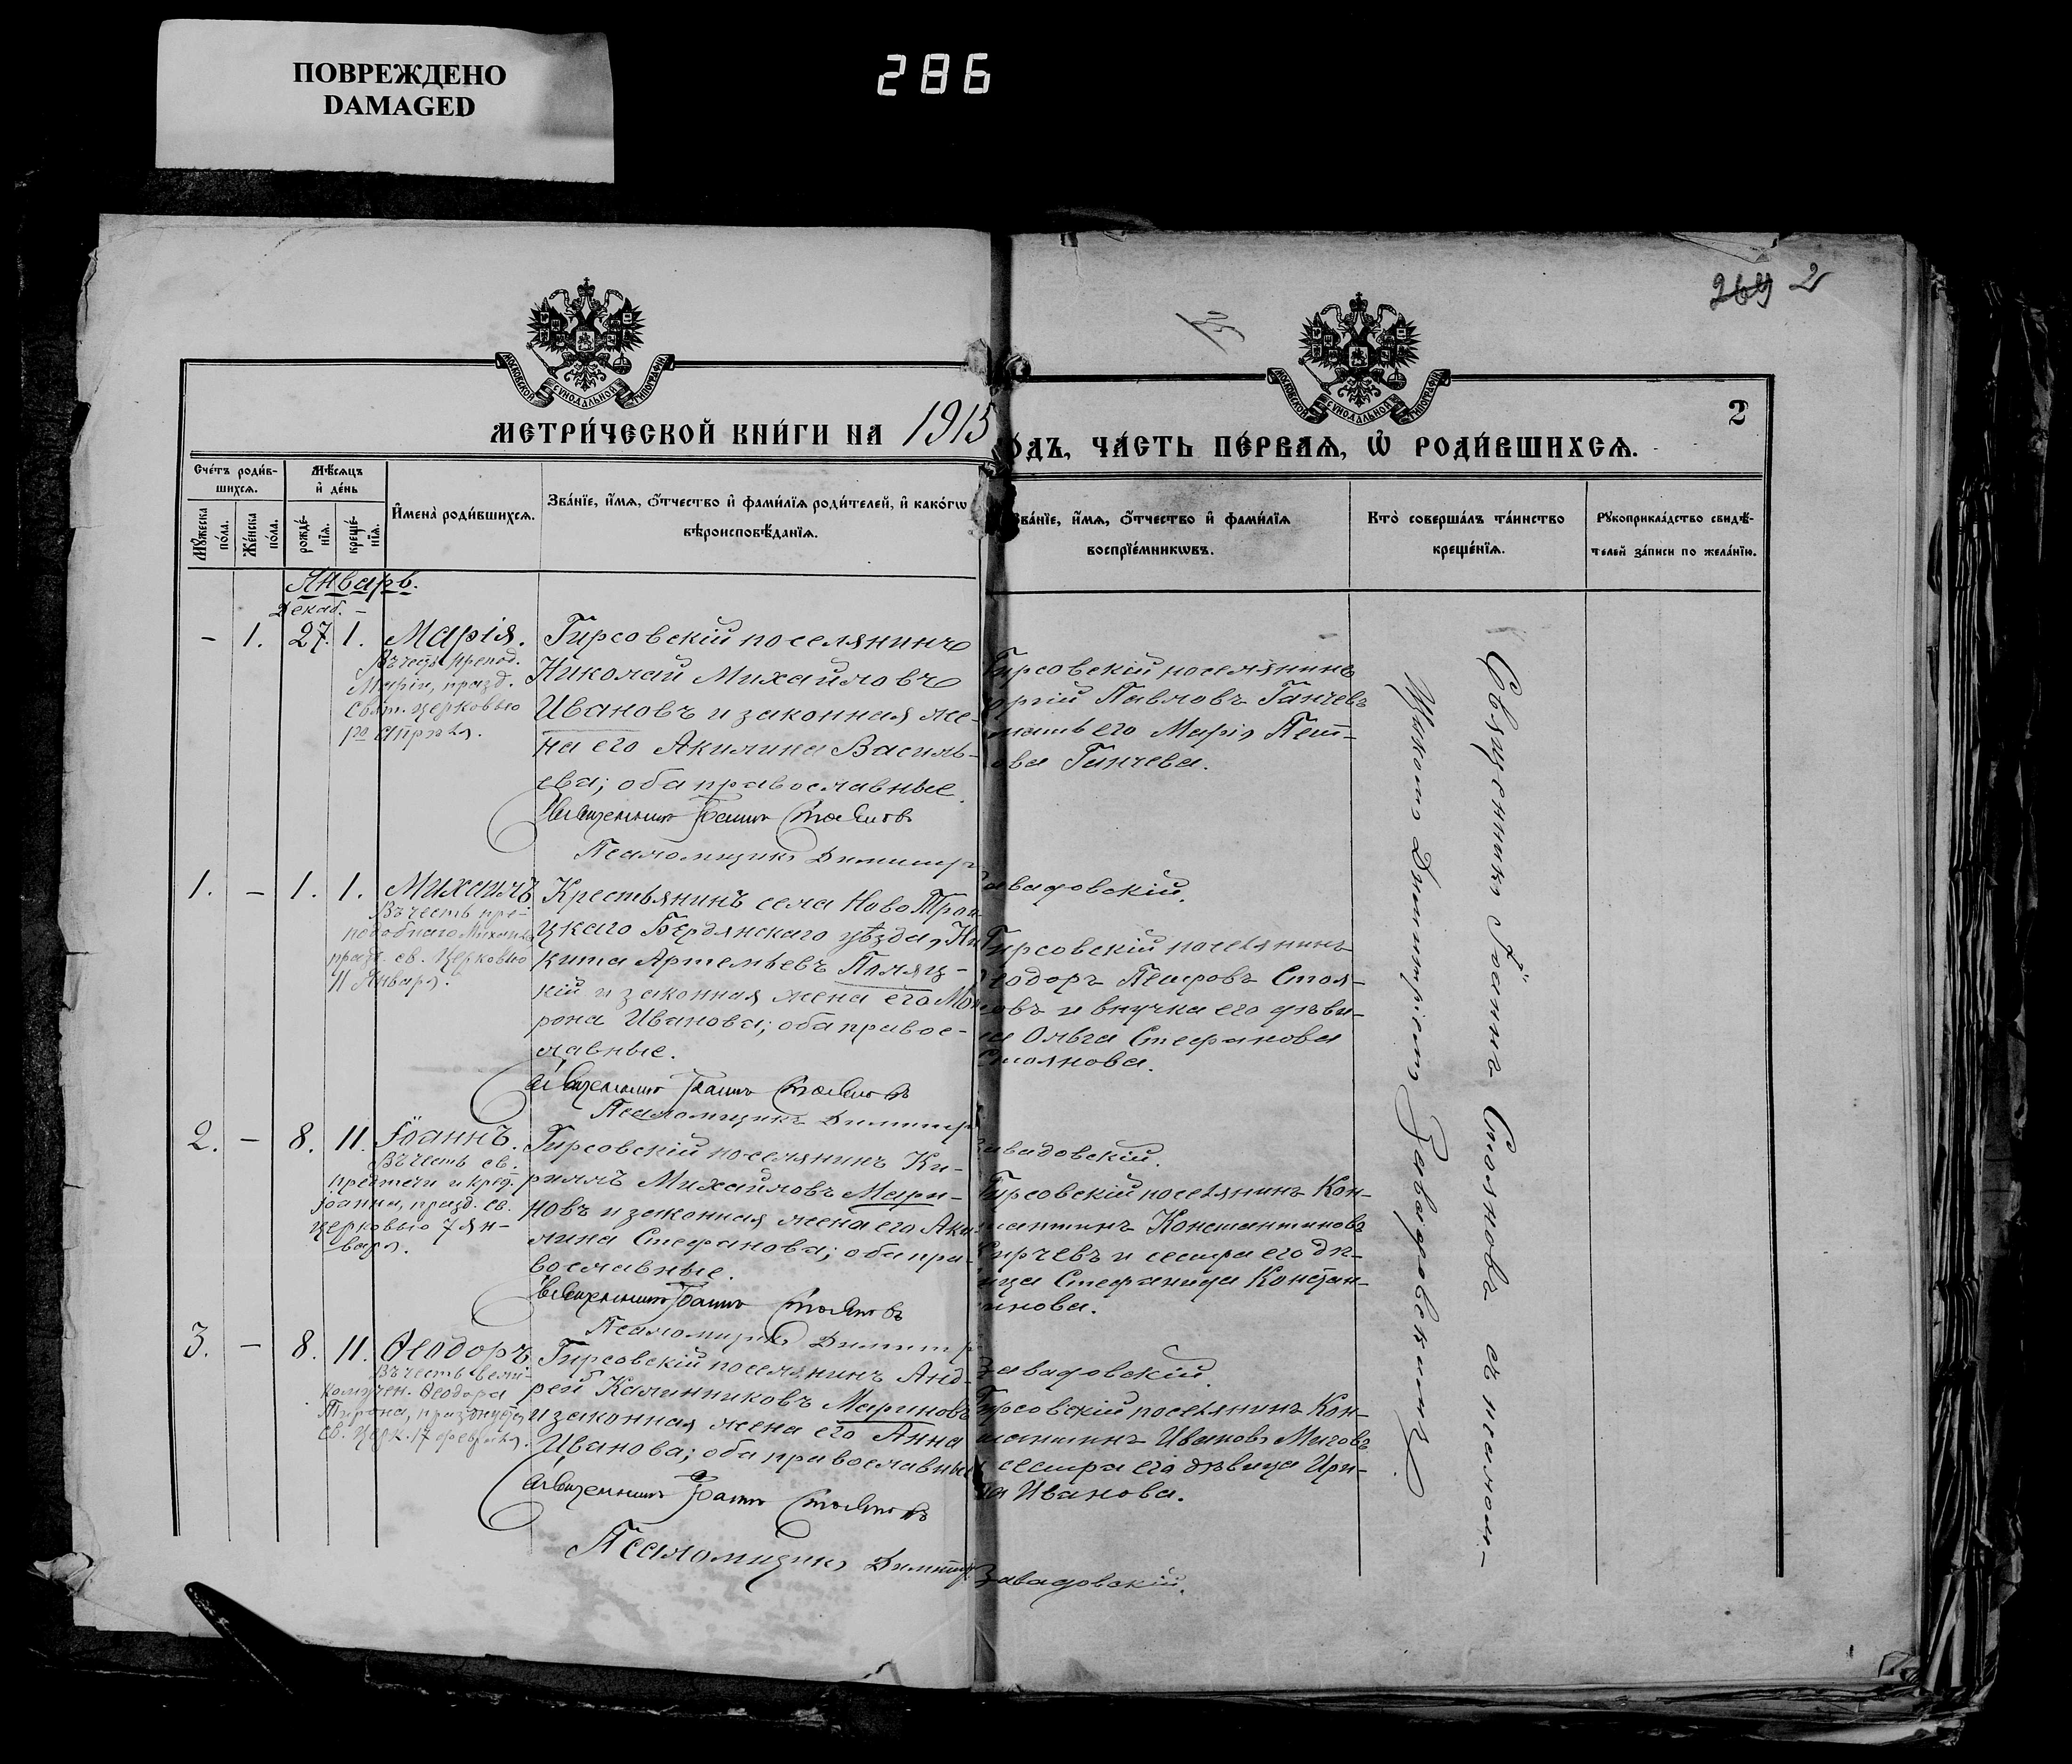 ПОВРЕЖДЕНО
DAMAGED
286
269 2
МОСКОВСКОЙ СѴНОДАЛЬНОЙ ТИПОГРАФІИ
МОСКОВСКОЙ СѴНОДАЛЬНОЙ ТИПОГРАФІИ
2
МЕТРИ́ЧЕСКОЙ КНИ́ГИ НА 1915
ОДЪ, ЧА́СТЬ ПЕ́РВАЯ, Ѿ РОДИ́ВШИХСЯ.
Сче́тъ роди́в-
шихся.
Мѣ́сяцъ
и҆ де́нь
Мꙋ́жеска по́ла.
Же́нска по́ла.
рожде́-
нїя.
креще́-
нїя.
И҆мена̀ роди́вшихся.
Зва́нїе, и҆́мя, ѻ҆́тчество и҆ фами́лїя роди́телей, и҆ како́гѡ
вѣроисповѣ́данїя.
Зва́нїе, и҆́мя, ѻ҆́тчество и҆ фами́лїя
воспрїе́мникѡвъ.
Кто̀ соверша́лъ та́инство
креще́нїя.
Рꙋкоприкла́дство свидѣ́-
телей за́писи по жела́нїю.
Январь.
Декаб. –
– 1. 27. 1. Марія.
Въ честь препод.
Маріи, празд.
Свят. церковью
1го Апрѣля.
Гирсовскій поселянинъ
Николай Михайловъ
Ивановъ и законная же-
на его Акилина Василь-
ева; оба православные.
Священникъ Іоаннъ Стояновъ
Псаломщикъ Димитр
Завадовскій.
Гирсовскій поселянинъ
оргій Павловъ Ганчевъ
мать его Марія Пет-
ова Ганчева.
1. – 1. 1. Михаилъ
Въ честь пре-
подобнаго Михаила
празд. св. Церковью
11 Января.
Крестьянинъ села Ново Трои-
цкаго Бердянскаго уѣзда, Ни
кита Артемьевъ Пляц-
кій и законная жена его Мо
рона Иванова; оба правос-
лавные.
Священникъ Іоаннъ Стояновъ
Псаломщикъ Димитр
Завадовскій.
Гирсовскій поселянинъ
Ѳеодоръ Петровъ Стоя-
новъ и внучка его дѣви-
ца Ольга Стефанова
Стоянова.
2. – 8. 11. Іоаннъ.
Въ честь св.
предтечи и крест.
Іоанна, празд. св.
церковью 7 ян-
варя.
Гирсовскій поселянинъ Ки-
риллъ Михайловъ Мари-
новъ и законная жена его Аки
лина Стефанова; оба пра-
вославные.
Священникъ Іоаннъ Стояновъ
Псаломщикъ Димитр
Завадовскій.
Гирсовскій поселянинъ Кон-
стантинъ Константиновъ
Кирчевъ и сестра его дѣ-
вица Стефанида Констан-
тинова.
3. – 8. 11. Ѳеодоръ
Въ честь вели-
комучен. Ѳеодора
Тирона, празднуетъ
св. церк. 17 февраля.
Гирсовскій поселянинъ Анд-
рей Калинниковъ Мариновъ
и законная жена его Анна
Иванова; оба православные
Священникъ Іоаннъ Стояновъ
Псаломщикъ Димитр
Завадовскій.
Гирсовскій поселянинъ Кон-
стантинъ Ивановъ
и сестра его дѣвица Ири-
на Иванова.
Священникъ Іоаннъ Стояновъ съ псалом-
щикомъ Димитріемъ Завадовскимъ